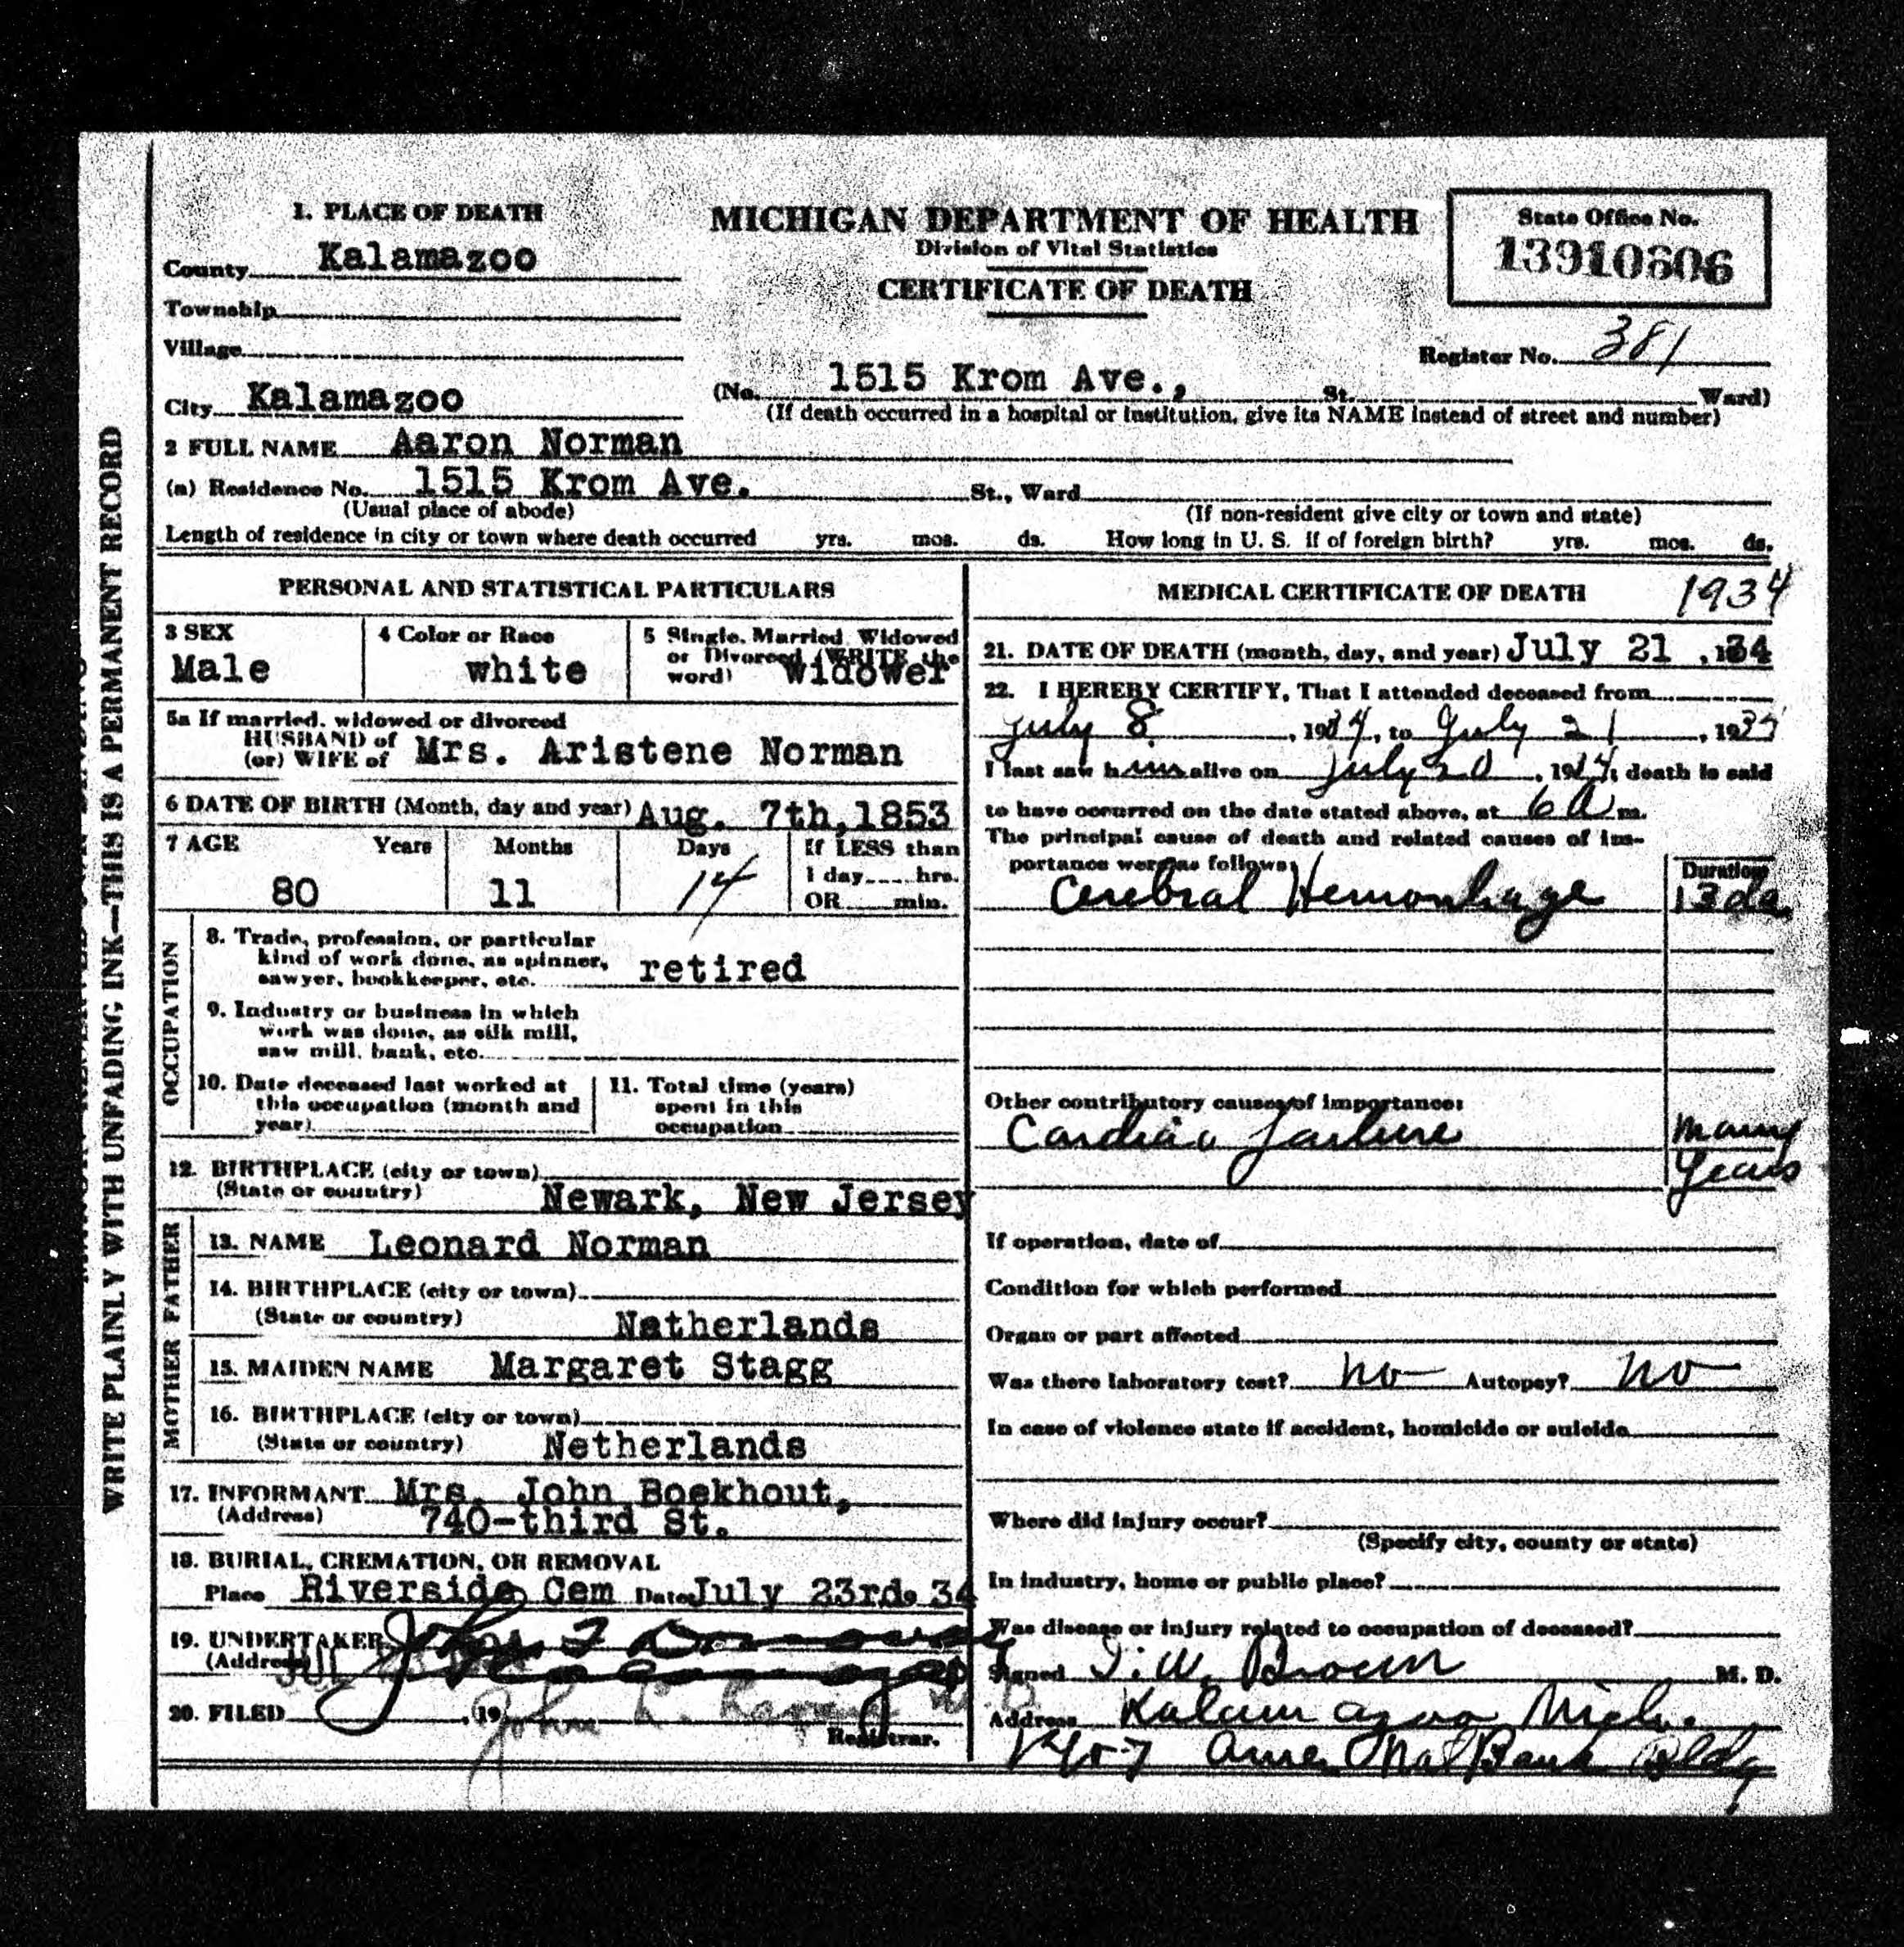 1. PLACE OF DEATH
County Kalamazoo
Township
Village
City Kalamazoo
MICHIGAN DEPARTMENT OF HEALTH
Division of Vital Statistics
CERTIFICATE OF DEATH
State Office No.
13910606
Register No. 381
(No. 1515 Krom Ave., St. Ward)
(If death occurred in a hospital or institution, give its NAME instead of street and number)
2 FULL NAME Aaron Norman
(a) Residence No. 1515 Krom Ave. St., Ward
(Usual place of abode) (If non-resident give city or town and state)
Length of residence in city or town where death occurred yrs. mos. ds. How long in U. S. if of foreign birth? yrs. mos. ds.
WRITE PLAINLY WITH UNFADING INK—THIS IS A PERMANENT RECORD
PERSONAL AND STATISTICAL PARTICULARS
3 SEX
Male
4 Color or Race
white
5 Single, Married, Widowed
or Divorced (WRITE the
word) Widower
5a If married, widowed or divorced
HUSBAND of
(or) WIFE of Mrs. Aristene Norman
6 DATE OF BIRTH (Month, day and year) Aug. 7th,1853
7 AGE Years Months Days If LESS than
1 day hrs.
80 11 14 OR min.
OCCUPATION
8. Trade, profession, or particular
kind of work done, as spinner,
sawyer, bookkeeper, etc. retired
9. Industry or business in which
work was done, as silk mill,
saw mill, bank, etc.
10. Date deceased last worked at
this occupation (month and
year)
11. Total time (years)
spent in this
occupation
12. BIRTHPLACE (city or town)
(State or country) Newark, New Jersey
FATHER
13. NAME Leonard Norman
14. BIRTHPLACE (city or town)
(State or country) Netherlands
MOTHER
15. MAIDEN NAME Margaret Stagg
16. BIRTHPLACE (city or town)
(State or country) Netherlands
17. INFORMANT Mrs. John Boekhout,
(Address) 740-third St.
18. BURIAL, CREMATION, OR REMOVAL
Place Riverside Cem Date July 23rd. 34
19. UNDERTAKER John
(Address)
20. FILED , 19 John
Registrar.
MEDICAL CERTIFICATE OF DEATH 1934
21. DATE OF DEATH (month, day, and year) July 21 , 134
22. I HEREBY CERTIFY, That I attended deceased from
July 8 , 1934, to July 21 , 1934
I last saw him alive on July 20 , 1934; death is said
to have occurred on the date stated above, at 6 a m.
The principal cause of death and related causes of im-
portance were as follows:
Duration
Cerebral Hemorrhage 13 da.
Other contributory causes of importance:
Cardiac failure many
years
If operation, date of
Condition for which performed
Organ or part affected
Was there laboratory test? no Autopsy? no
In case of violence state if accident, homicide or suicide
Where did injury occur?
(Specify city, county or state)
In industry, home or public place?
Was disease or injury related to occupation of deceased?
Signed I. W. Brown M. D.
Address Kalamazoo Mich.
Amer Nat Bank Bldg